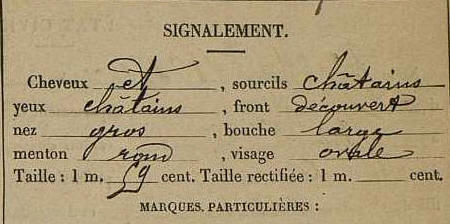 SIGNALEMENT.
Cheveux et, sourcils châtains
yeux châtains, front découvert
nez gros, bouche large
menton rond, visage ovale
Taille : 1 m. 59 cent. Taille rectifiée : 1 m. cent.
MARQUES PARTICULIÈRES :